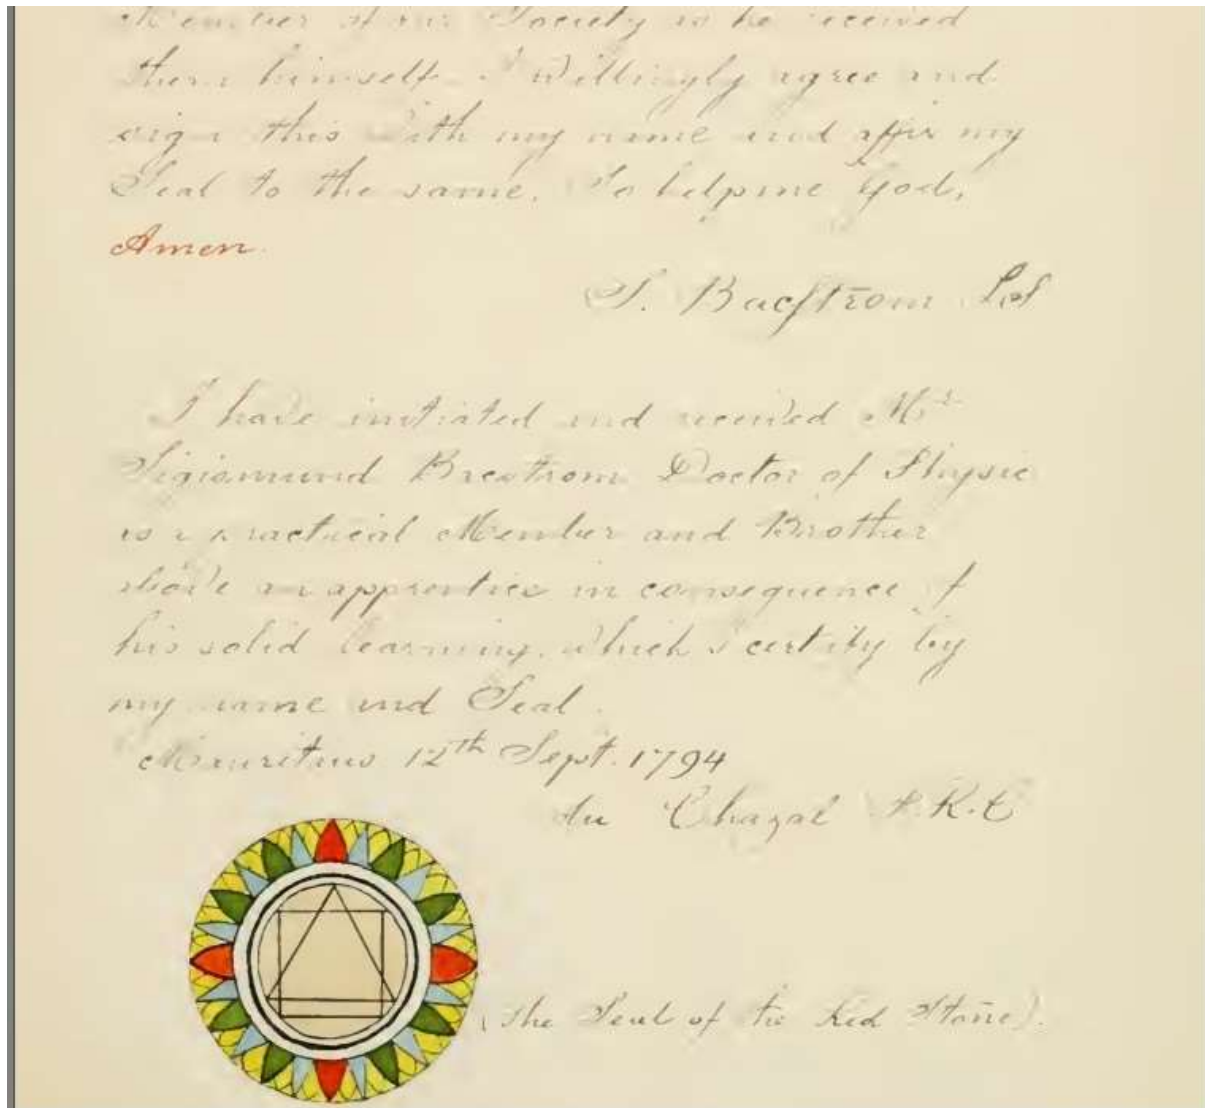 Member of our Society to be received
then himself. I Willingly agree and
sign this with my name and affix my
Seal to the same. So help me God,
Amen.
S. Bacstrom LS
I have initiated and received Mr
Sigismund Bacstrom Doctor of Physic
as a practical Member and Brother
above an apprentice in consequence of
his solid learning. Which I certify by
my name and Seal.
Mauritius 12th Sept. 1794
du Chazal F.R.C
(The Seal of the Red Stone).